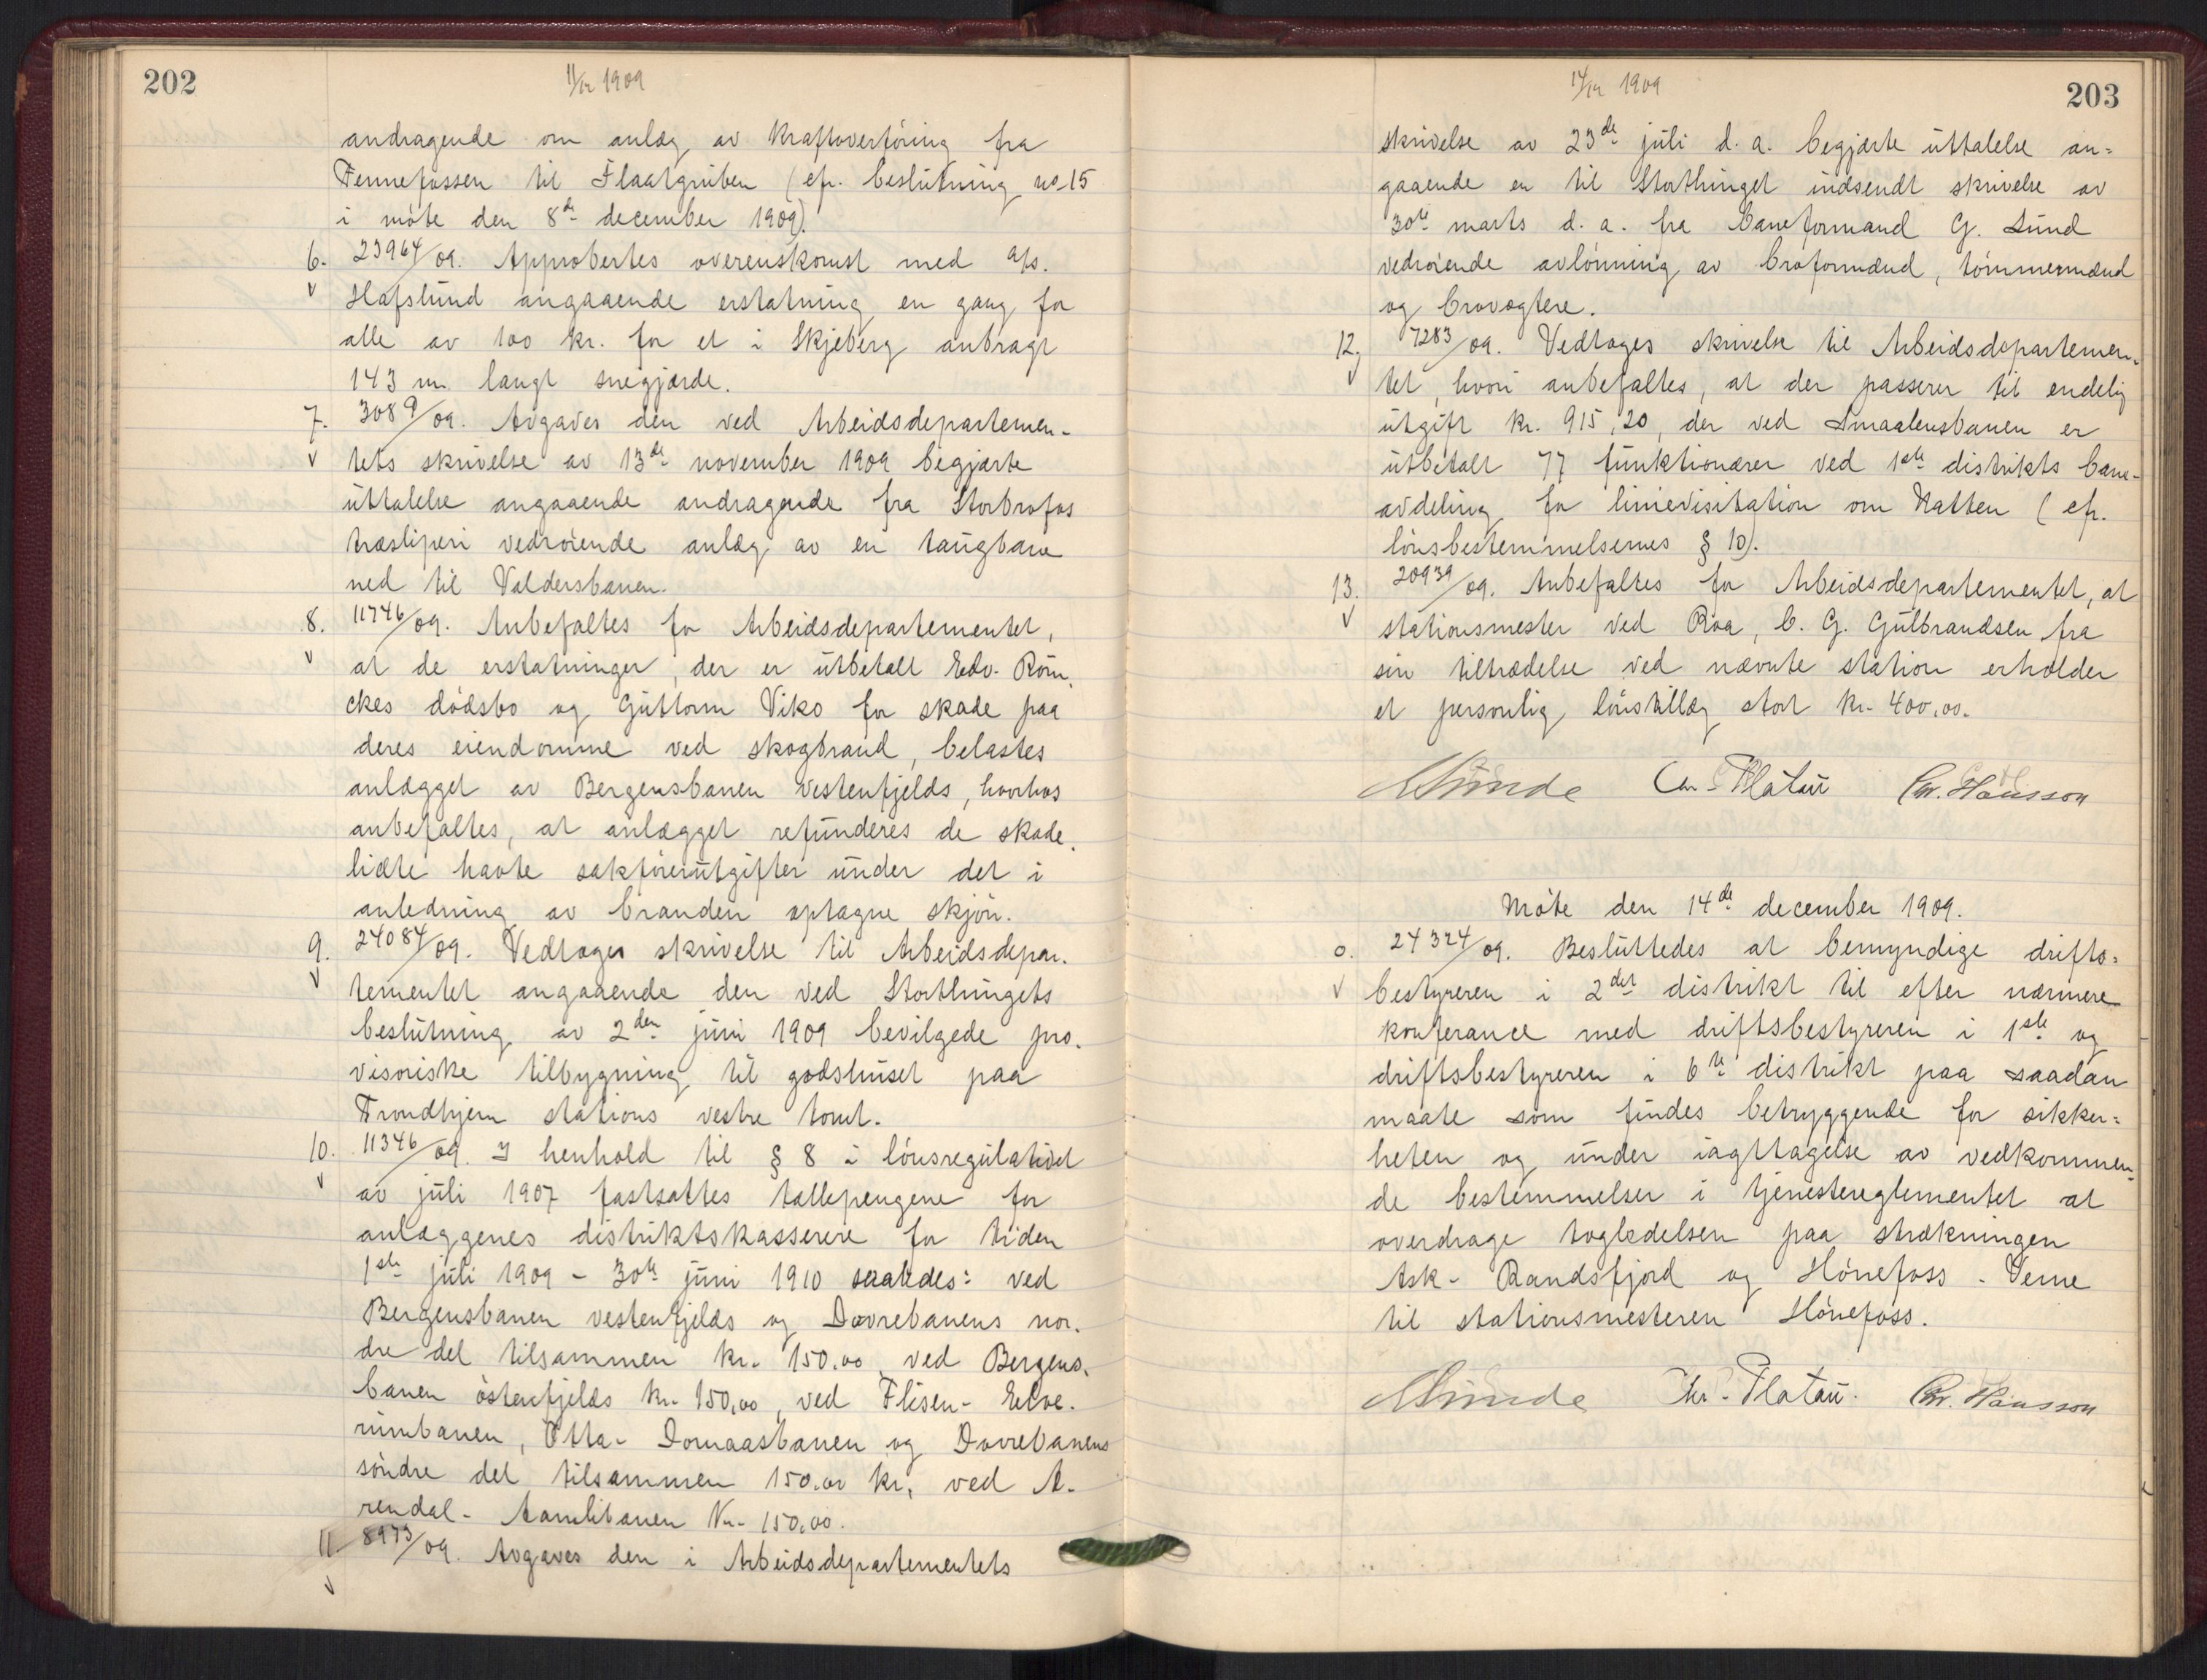 202
11/12 1909
andragende om anlæg av kraftoverføring fra
Fennefossen til Flaatgruben (cfr. beslutning no. 15
i møte den 8de december 1909).
6. 23964/09. Approbertes overenskomst med A/s.
Hafslund angaaende erstatning en gang for
alle av 100 kr. for et i Skjeberg anbragt
143 m. langt snegjærde.
7. 3089/09. Avgaves den ved Arbeidsdepartemen-
tets skrivelse av 13de november 1909 begjærte
uttalelse angaaende andragende fra Storbrofos
træsliperi vedrørende anlæg av en taugbane
ned til Valdersbanen.
8. 11746/09. Anbefaltes for Arbeidsdepartementet,
at de erstatninger, der er utbetalt Edv. Røm-
ckes dødsbo og Guttorm Viko for skade paa
deres eiendomme ved skogbrand, belastes
anlægget av Bergensbanen vestenfjelds, hvorhos
anbefaltes, at anlægget refunderes de skade-
lidte havte sakførerutgifter under det i
anledning av branden optagne skjøn.
9. 24084/09. Vedtoges skrivelse til Arbeidsdepar-
tementet angaaende den ved Storthingets
beslutning av 2den juni 1909 bevilgede pro-
visoriske tilbygning til godshuset paa
Trondhjem stations vestre tomt.
10. 11346/09. I henhold til § 8 i lønsregulativet
av juli 1907 fastsattes tællepengene for
anlæggenes distriktskasserere for tiden
1ste juli 1909 - 30te juni 1910 saaledes: ved
Bergensbanen vestenfjelds og Dovrebanens nor-
dre del tilsammen kr. 150.00, ved Bergens-
banen østenfjelds kr. 150,00, ved Flisen- Elve-
rumbanen, Otta- Domaasbanen og Dovrebanens
søndre del tilsammen 150.00 kr., ved A-
rendal- Aamlibanen kr. 150,00.
11. 8973/09. Avgaves den i Arbeidsdepartementets
14/12 1909
203
skrivelse av 23de juli d. a. begjærte uttalelse an-
gaaende en til Storthinget indsendt skrivelse av
30te marts d. a. fra baneformand G. Lund
vedrørende avlønning av broformænd, tømmermænd
og brovogtere.
12. 7283/09. Vedtoges skrivelse til Arbeidsdepartemen-
tet, hvori anbefaltes, at der passerer til endelig
utgift kr. 915,20, der ved Smaalensbanen er
utbetalt 77 funktionærer ved 1ste distrikts bane-
avdeling for linievisitation om Natten (cfr.
lønsbestemmelsernes § 10).
13. 20939/09. Anbefaltes for Arbeidsdepartementet, at
stationsmester ved Roa, C. G. Gulbrandsen fra
sin tiltrædelse ved nævnte station erholder
et personlig lønstillæg stort kr. 400,00.
Munde Chr. Platou Chr. Hansson
Møte den 14de december 1909.
0. 24324/09. Besluttedes at bemyndige drifts-
bestyreren i 2det distrikt til efter nærmere
konferance med driftsbestyreren i 1ste og
driftsbestyreren i 6te distrikt paa saadan
maate som findes betryggende for sikker-
heten og under iagttagelse av vedkommen-
de bestemmelser i tjenestereglementet at
overdrage togledelsen paa strækningen
Ask- Randsfjord og Hønefoss - Veme
til stationsmesteren Hønefoss.
Munde Chr. Platou. Chr. Hansson